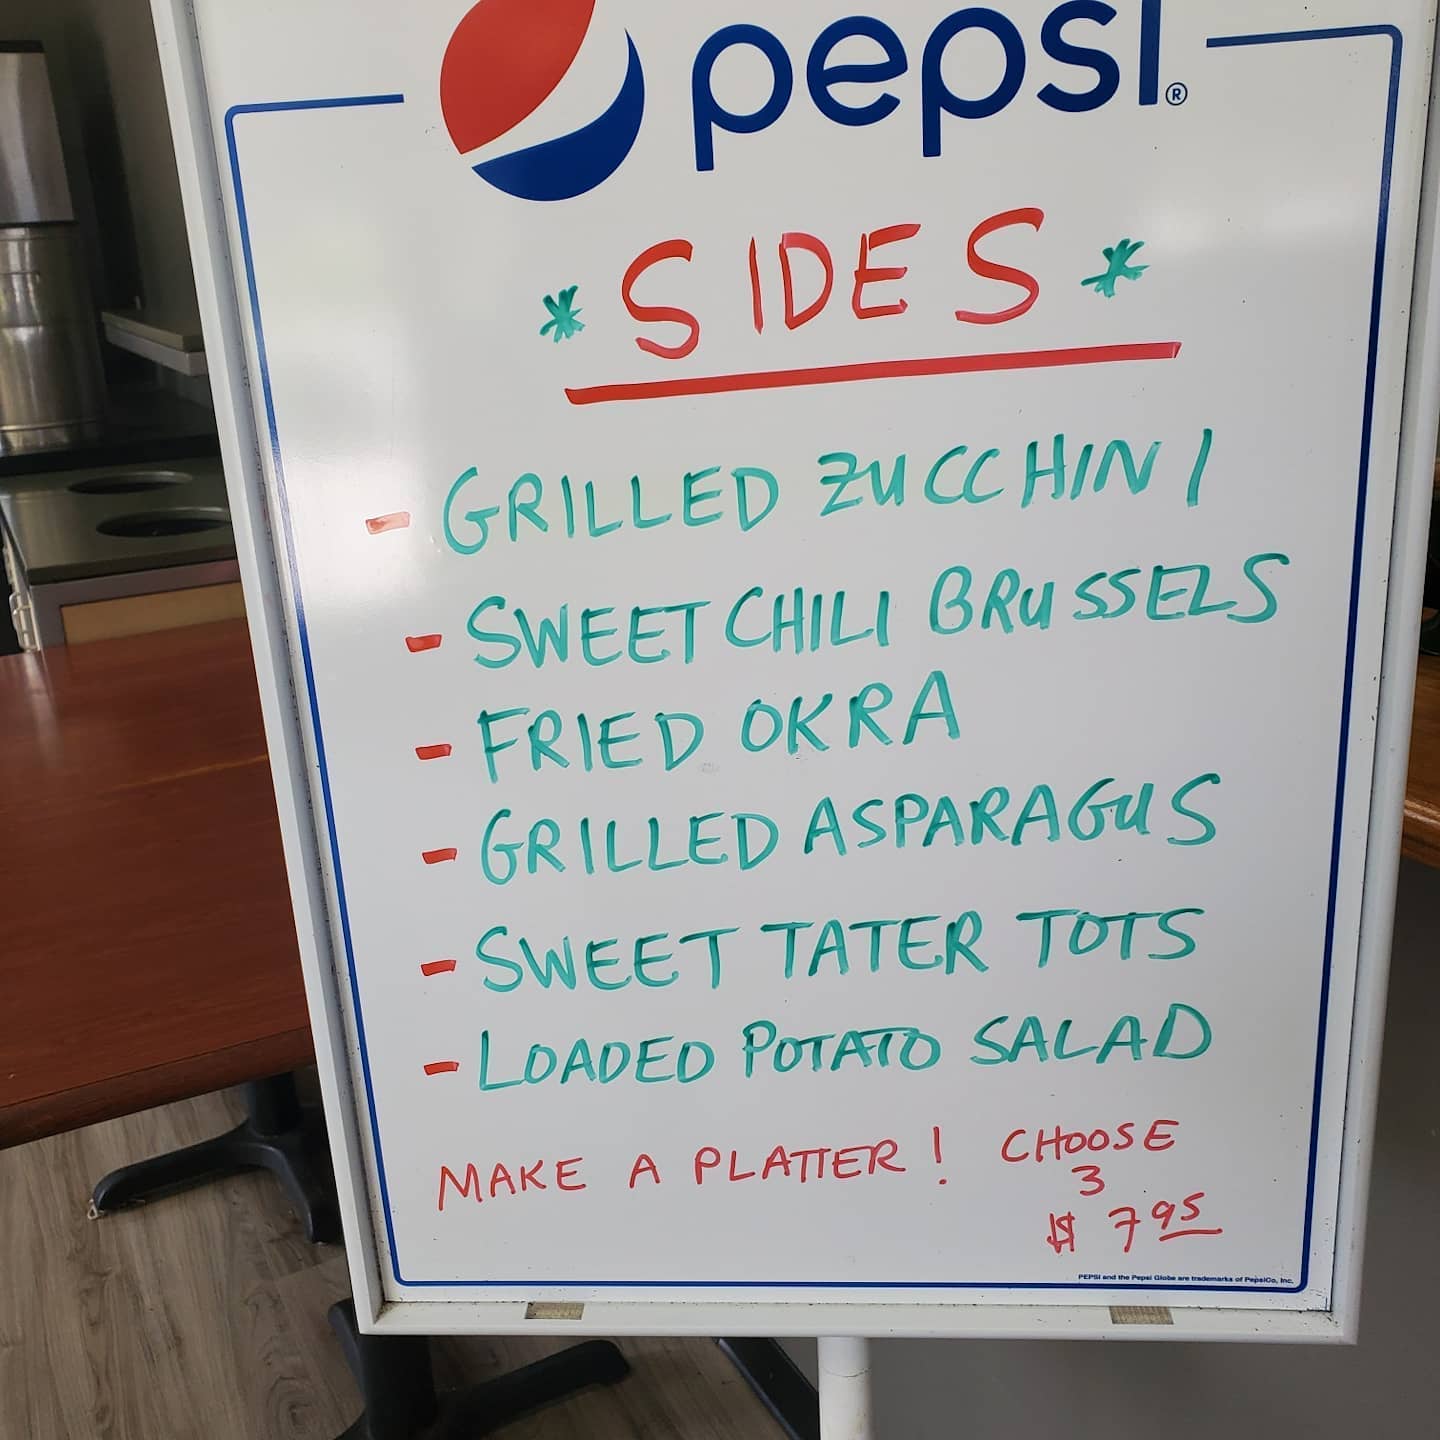 pepsi®
* SIDES *
- GRILLED ZUCCHINI
- SWEET CHILI BRUSSELS
- FRIED OKRA
- GRILLED ASPARAGUS
- SWEET TATER TOTS
- LOADED POTATO SALAD
MAKE A PLATTER! CHOOSE
3
$ 7 95
PEPSI and the Pepsi Globe are trademarks of PepsiCo, Inc.